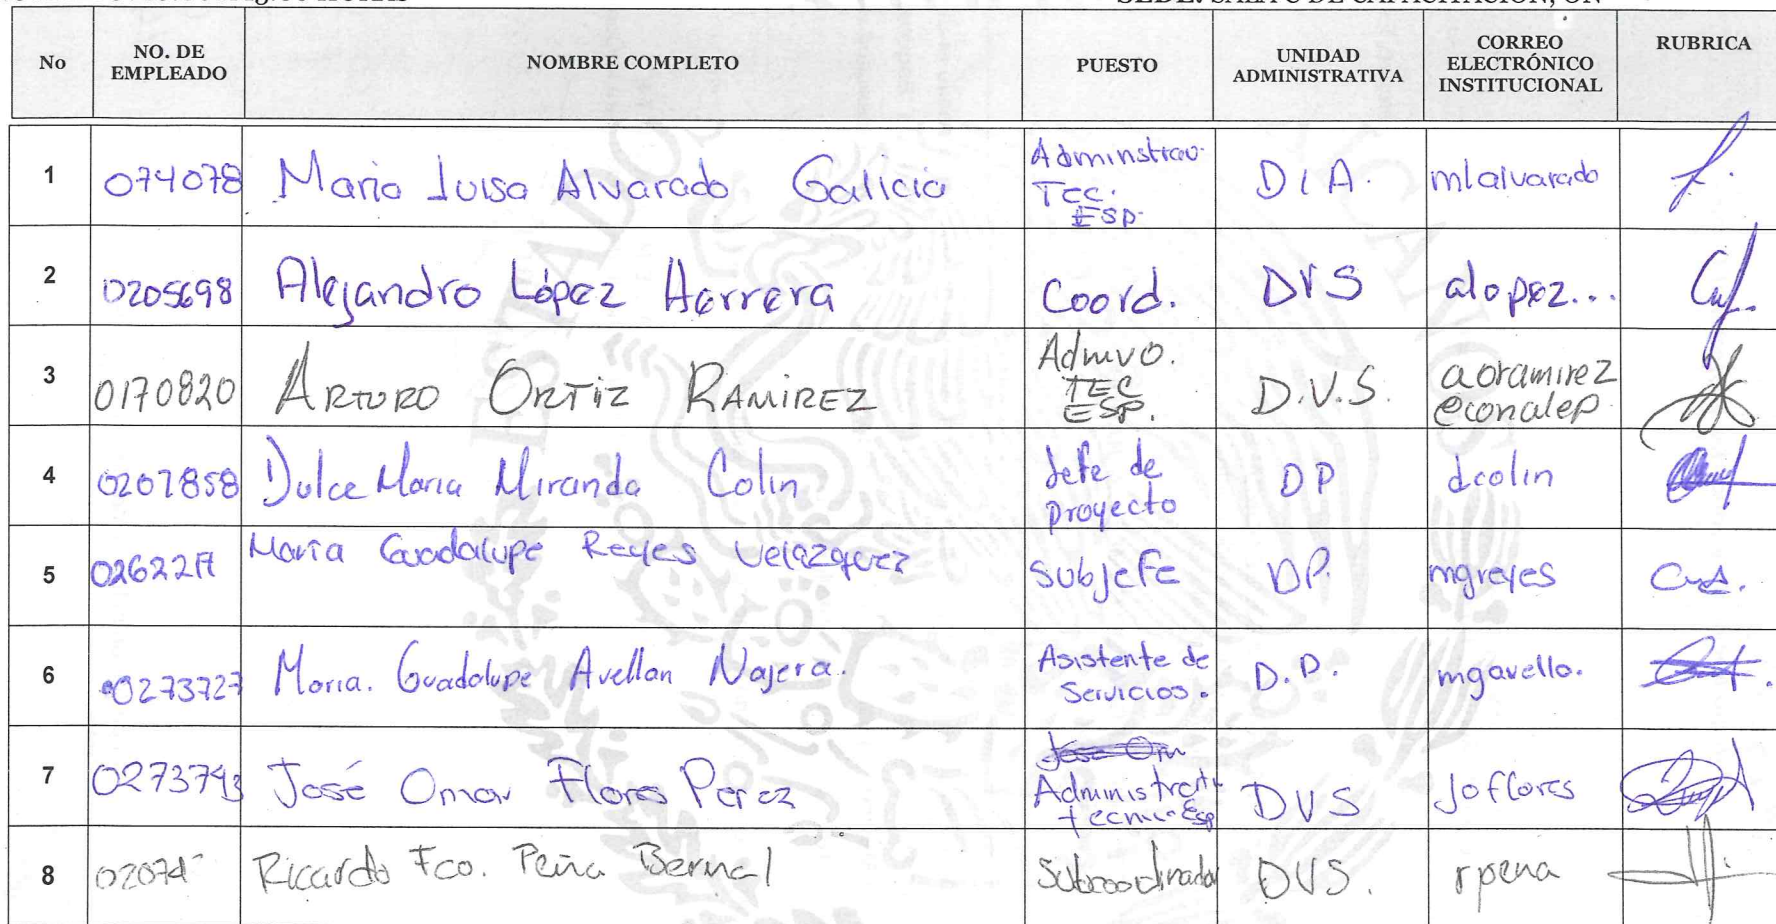 SEDE: SALA C DE CAPACITACIÓN, ON
No NO. DE EMPLEADO NOMBRE COMPLETO PUESTO UNIDAD ADMINISTRATIVA CORREO ELECTRÓNICO INSTITUCIONAL RUBRICA
1 074078 Maria Luisa Alvarado Galicia Adminstrav. Tec. Esp. D I A. mlalvarado
2 0205698 Alejandro López Herrera Coord. DVS alopez...
3 0170820 ARTURO ORTIZ RAMIREZ Admvo. TEC ESP. D.V.S. aoramirez @conalep
4 0207858 Dulce Maria Miranda Colin Jefe de proyecto DP dcolin
5 María Guadalupe Reyes Velazquez Subjefe DP. mgreyes
6 0273727 Maria. Guadalupe Avellan Najera. Asistente de Servicios. D.P. mgavello.
7 0273743 José Omar Flores Perez DVS joflores
8 Ricardo Fco. Peña Bernal Subcoordinador DVS. rpena